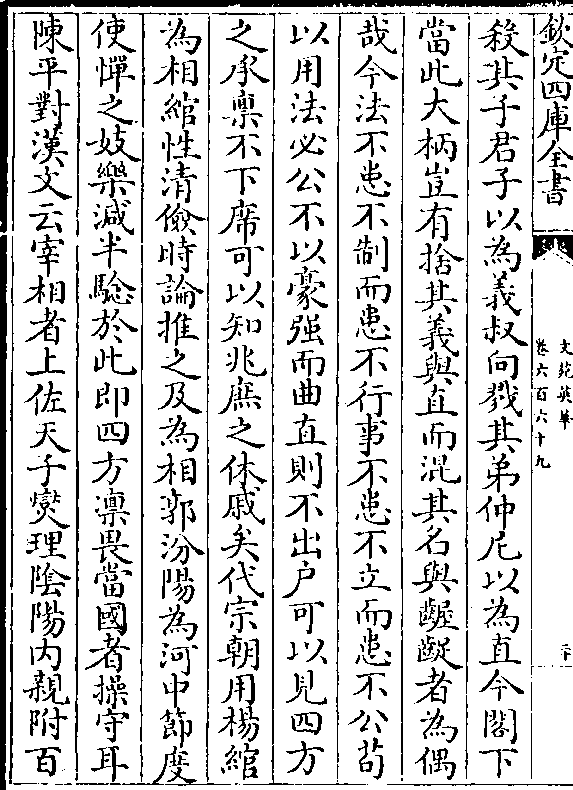 欽定四庫全書
文苑英華
卷六百六十九
二十
殺其子君子以為義叔向戮其弟仲尼以為直今閣下
當此大柄豈有捨其義與直而混其名與齷齪者為偶
哉今法不患不制而患不行事不患不立而患不公苟
以用法必公不以豪强而曲直則不出户可以見四方
之承禀不下席可以知兆庶之休戚矣代宗朝用楊綰
為相綰性清儉時論推之及為相郭汾陽為河中節度
使憚之妓樂減半騐於此即四方凛畏當國者操守耳
陳平對漢文云宰相者上佐天子爕理陰陽内親附百